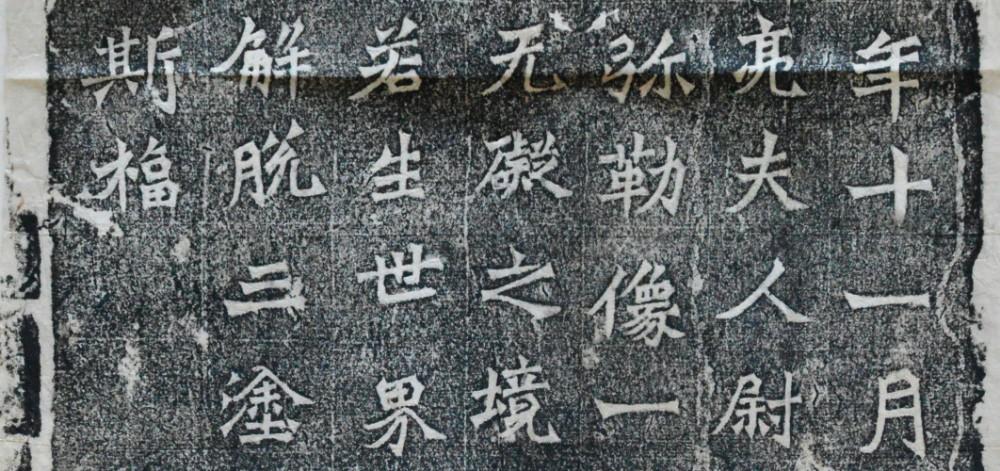 年十一月
亮夫人尉
弥勒像一
无礙之境
若生世界
解脱三塗
斯福